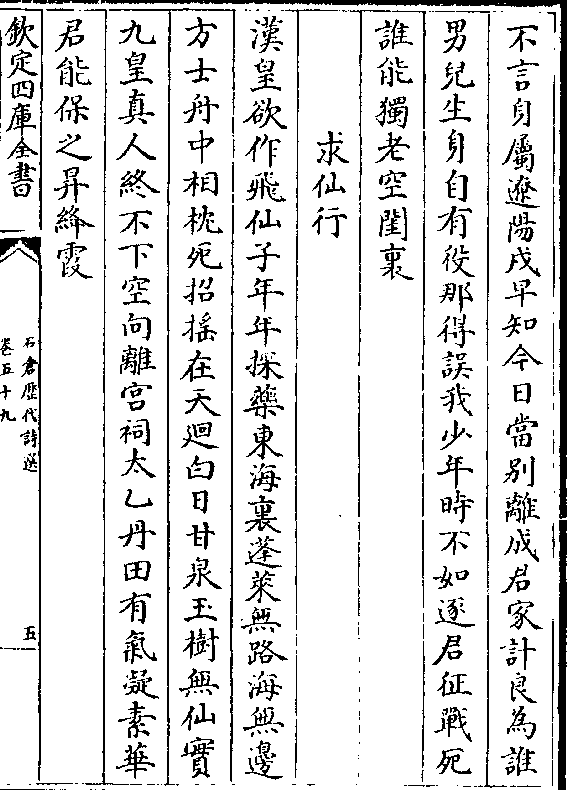 不言身屬遼陽戍早知今日當别離成君家計良為誰
男兒生身自有役那得誤我少年時不如逐君征戰死
誰能獨老空閨裏
求仙行
漢皇欲作飛仙子年年採藥東海裏蓬萊無路海無邊
方士舟中相枕死招摇在天迴白日甘泉玉樹無仙實
九皇真人終不下空向離宫祠太乙丹田有氣凝素華
君能保之昇絳霞
欽定四庫全書
石倉歷代詩選
卷五十九
五